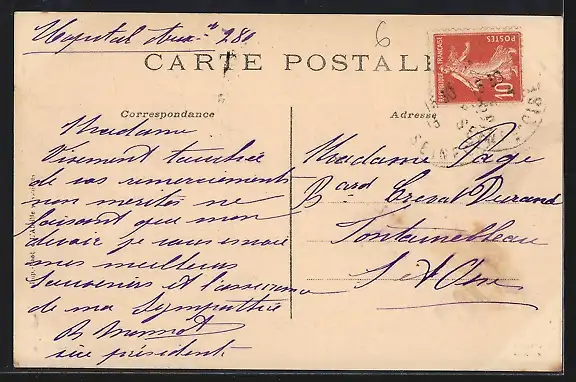 Hopital Aux.re 280
6
CARTE POSTALE
POSTES
REPUBLIQUE FRANCAISE
10
Correspondance
Adresse
Madame
Vivement touchée
de vos remerciements
non mérités ne
faisant que mon
devoir je vous envoie
mes meilleurs
souvenirs et l'assurance
de ma sympathie
vice président
Madame Page
Bard Creval Durand
Fontainebleau
S et Oise